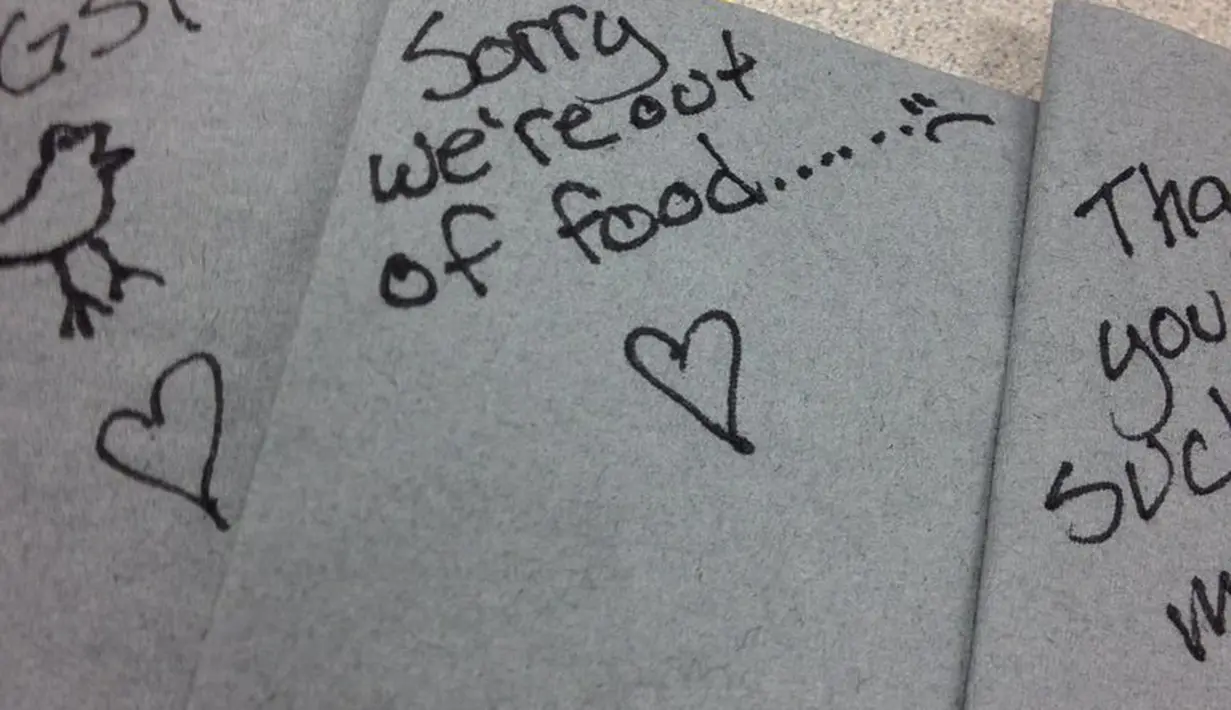 GS!
Sorry
we're out
of food.........:(
Tha
you
suc